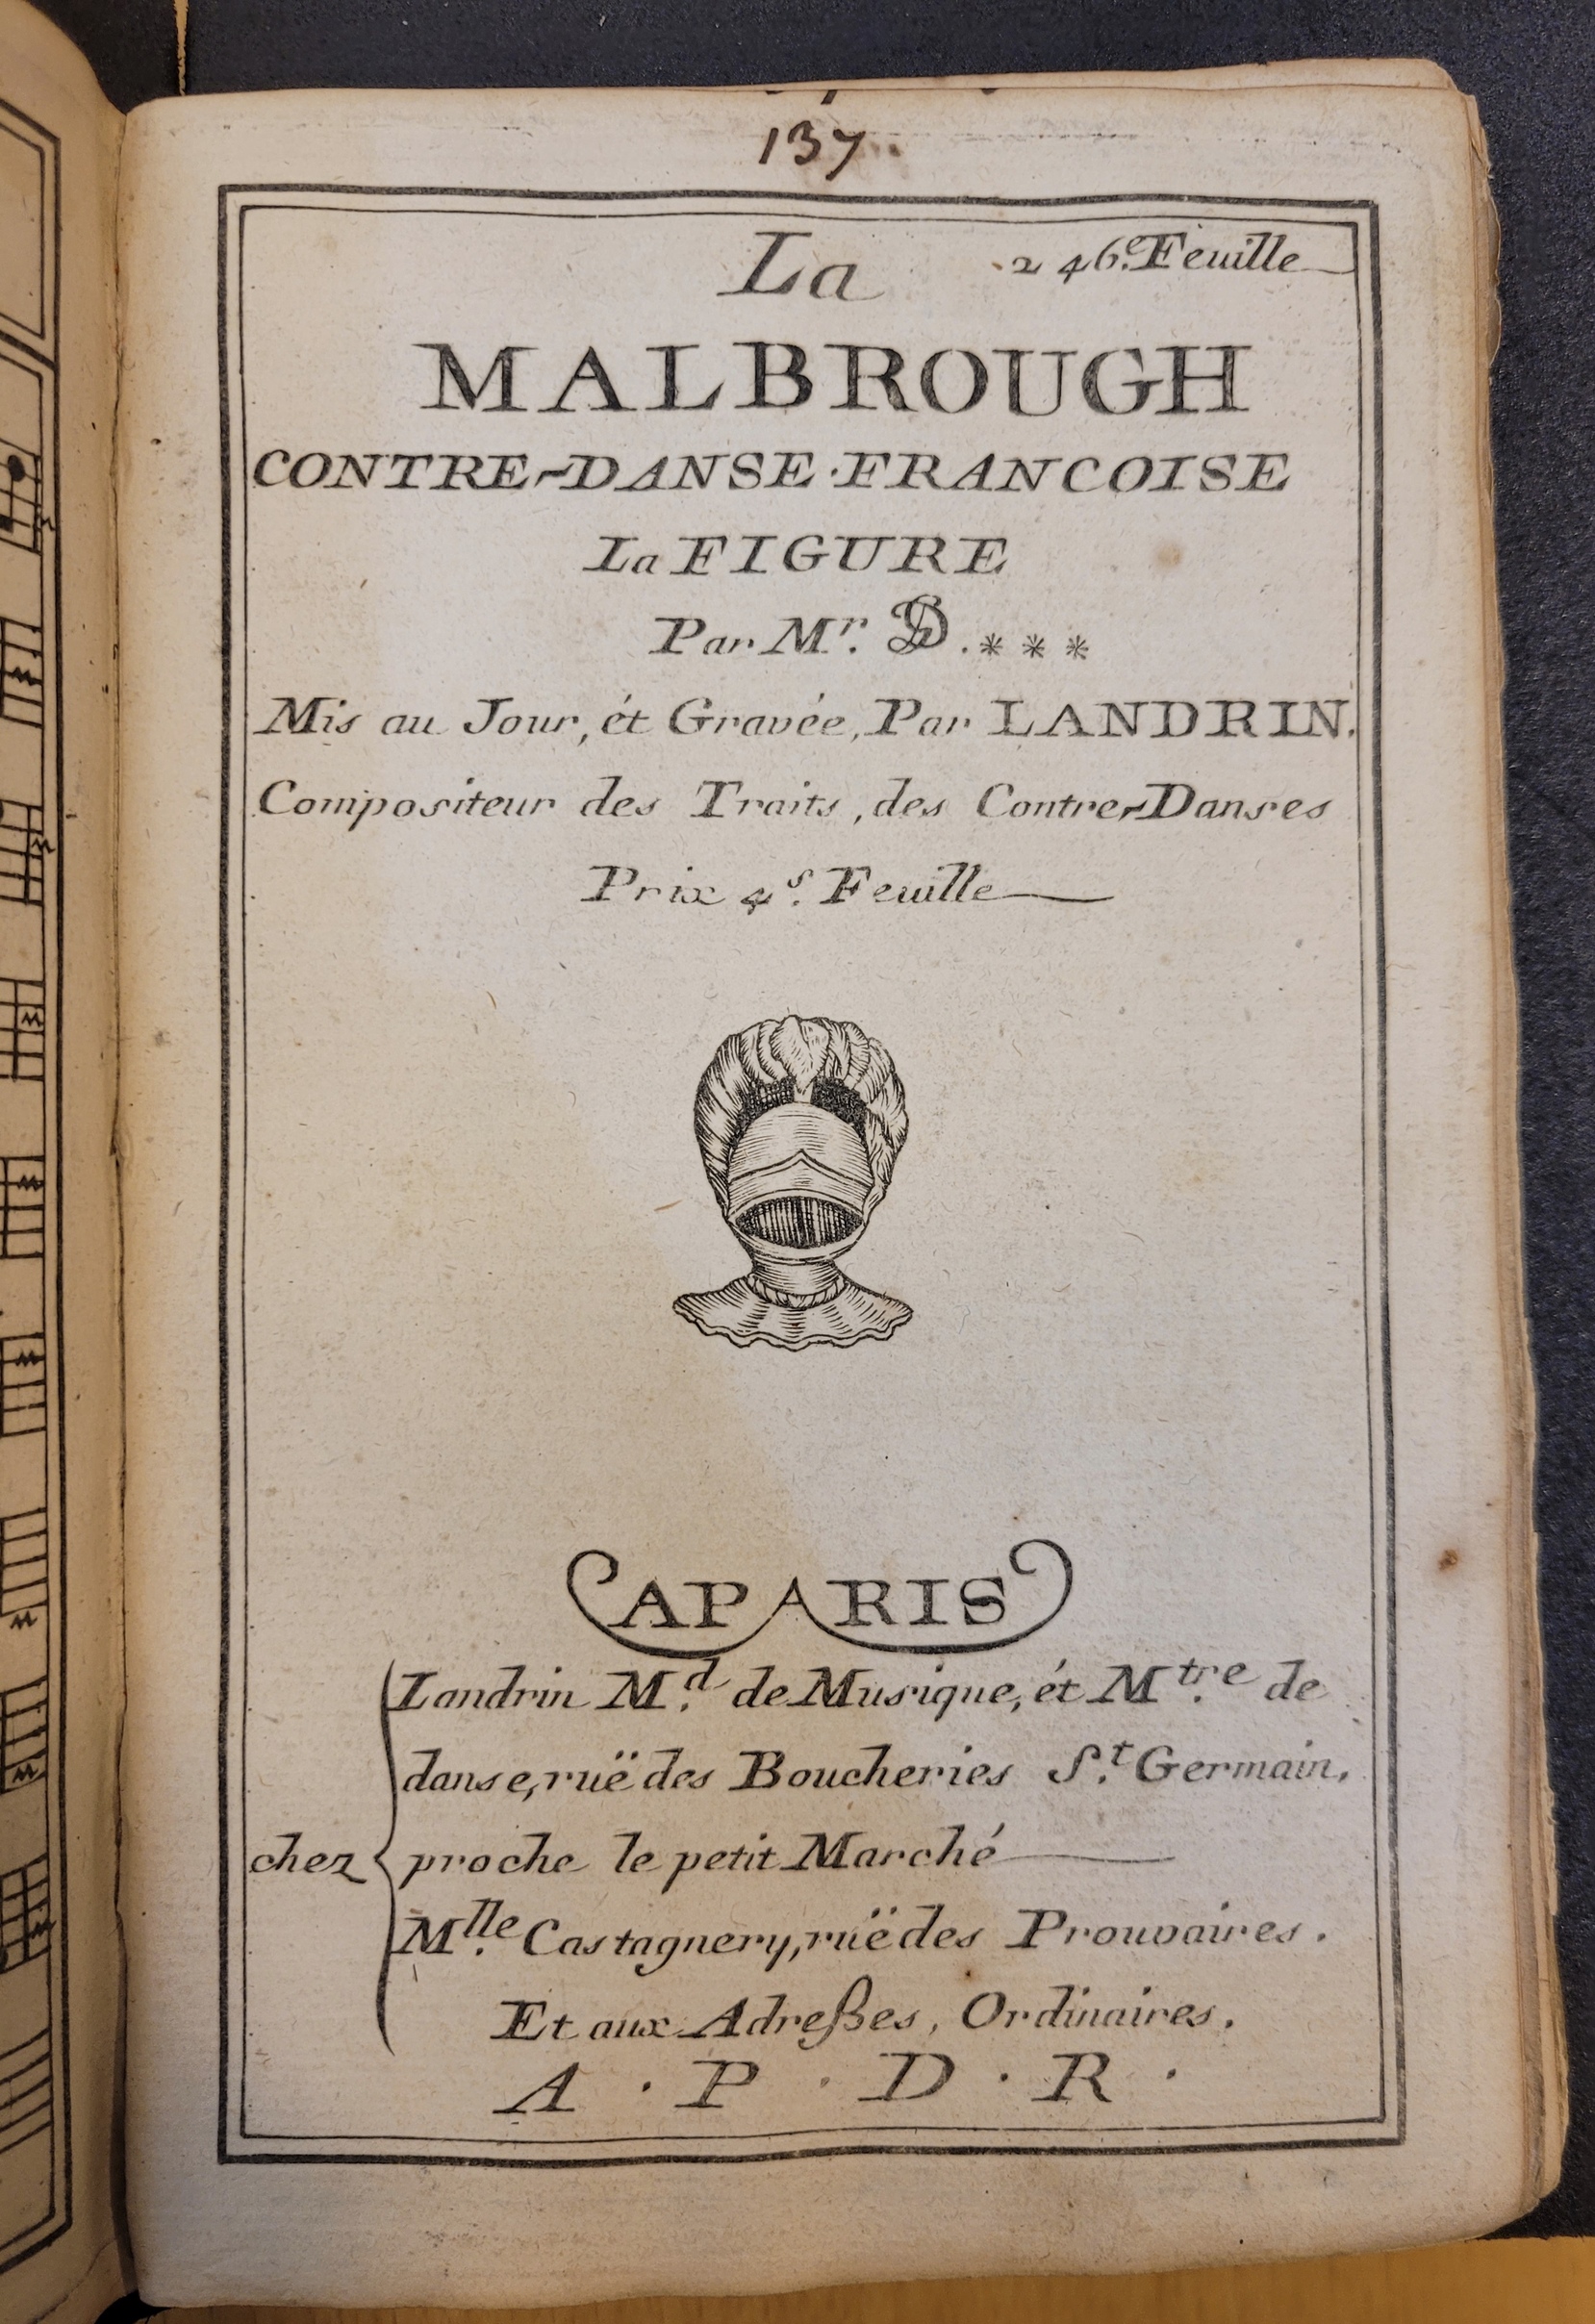 137.
La 246.e Feuille
MALBROUGH
CONTRE-DANSE·FRANCOISE
La FIGURE
Par Mr. D.***
Mis au Jour, ét Gravée, Par LANDRIN.
Compositeur des Traits, des Contre-Danses
Prix 4s. Feuille
APARIS
Landrin M.d de Musique, ét M.tre de
danse, ruë des Boucheries S.t Germain,
chez proche le petit Marché
M.lle Castagnery, ruë des Prouvaires.
Et aux Adreßes, Ordinaires.
A · P · D · R ·